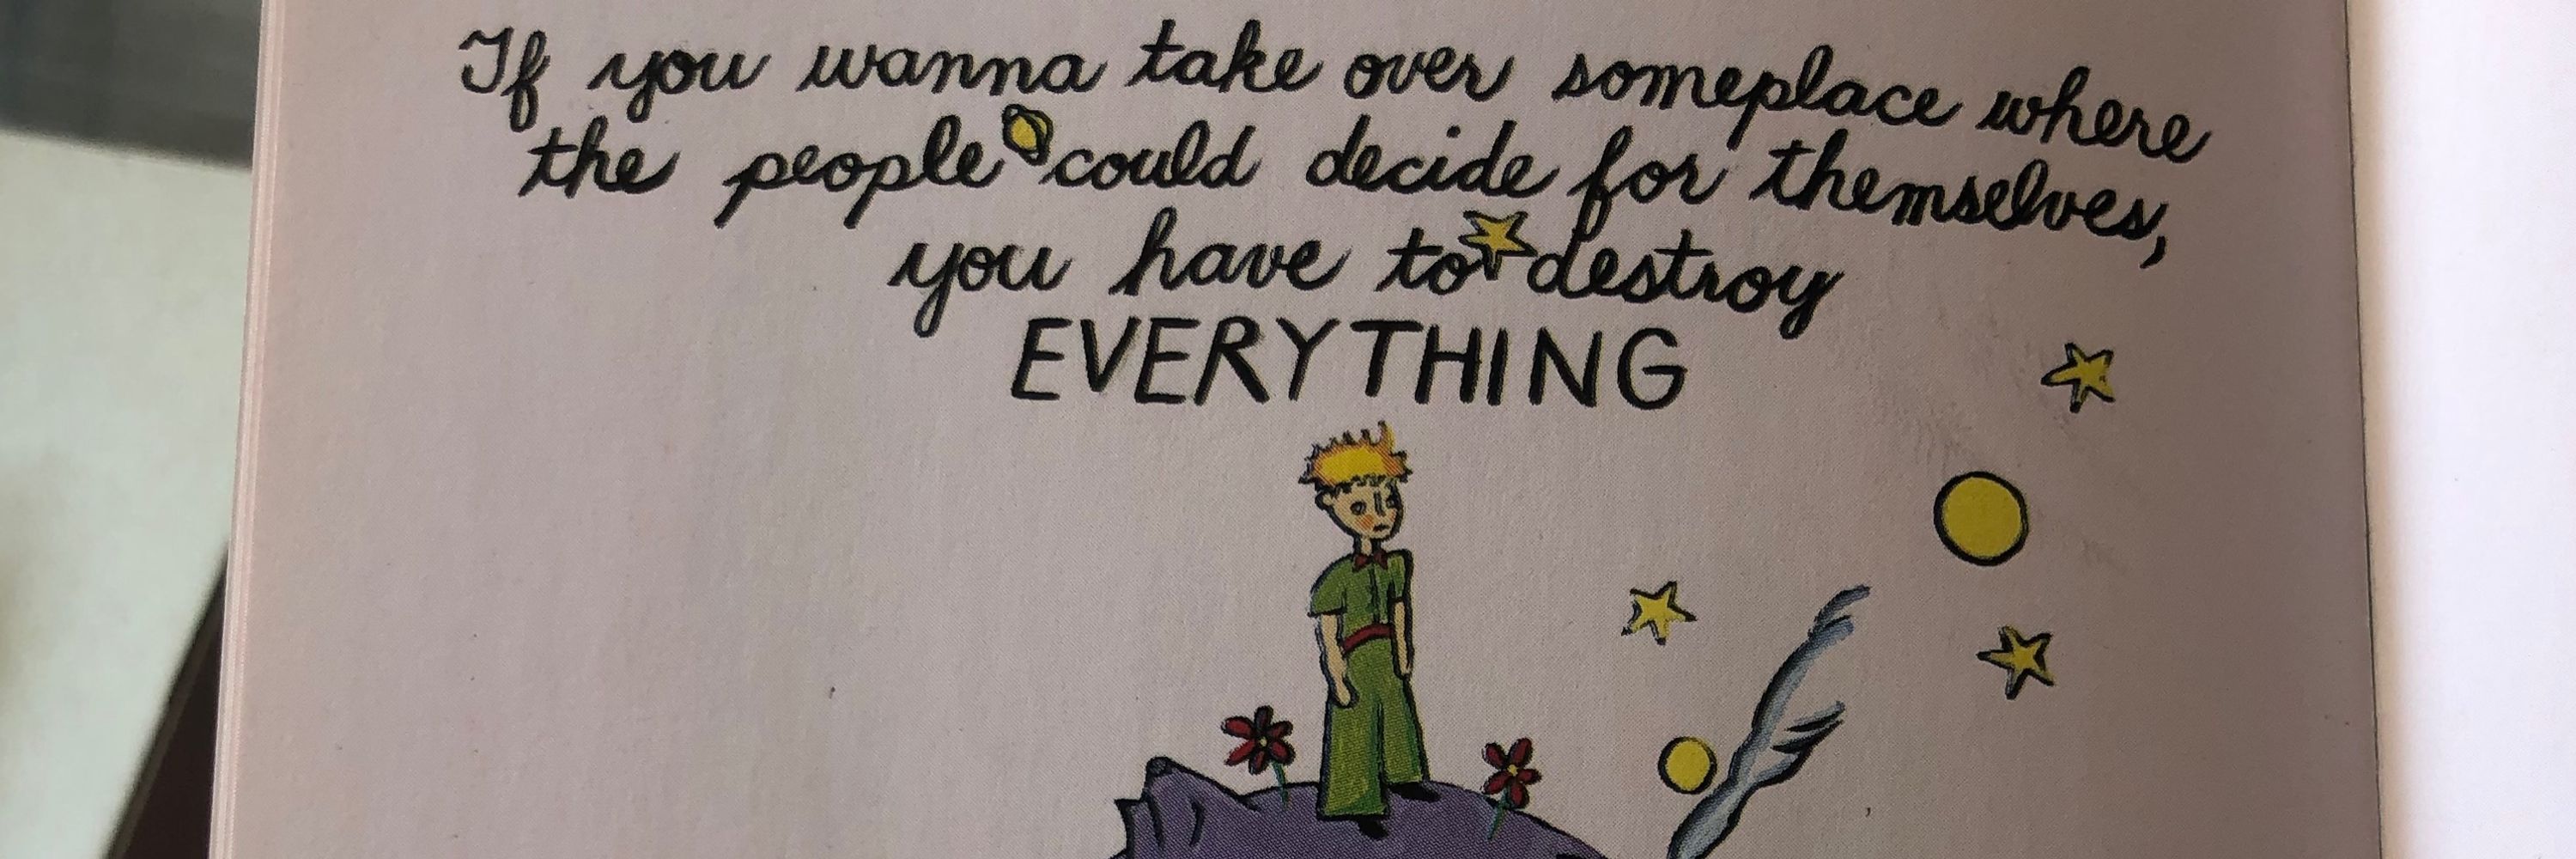 If you wanna take over someplace where
the people could decide for themselves,
you have to destroy
EVERYTHING